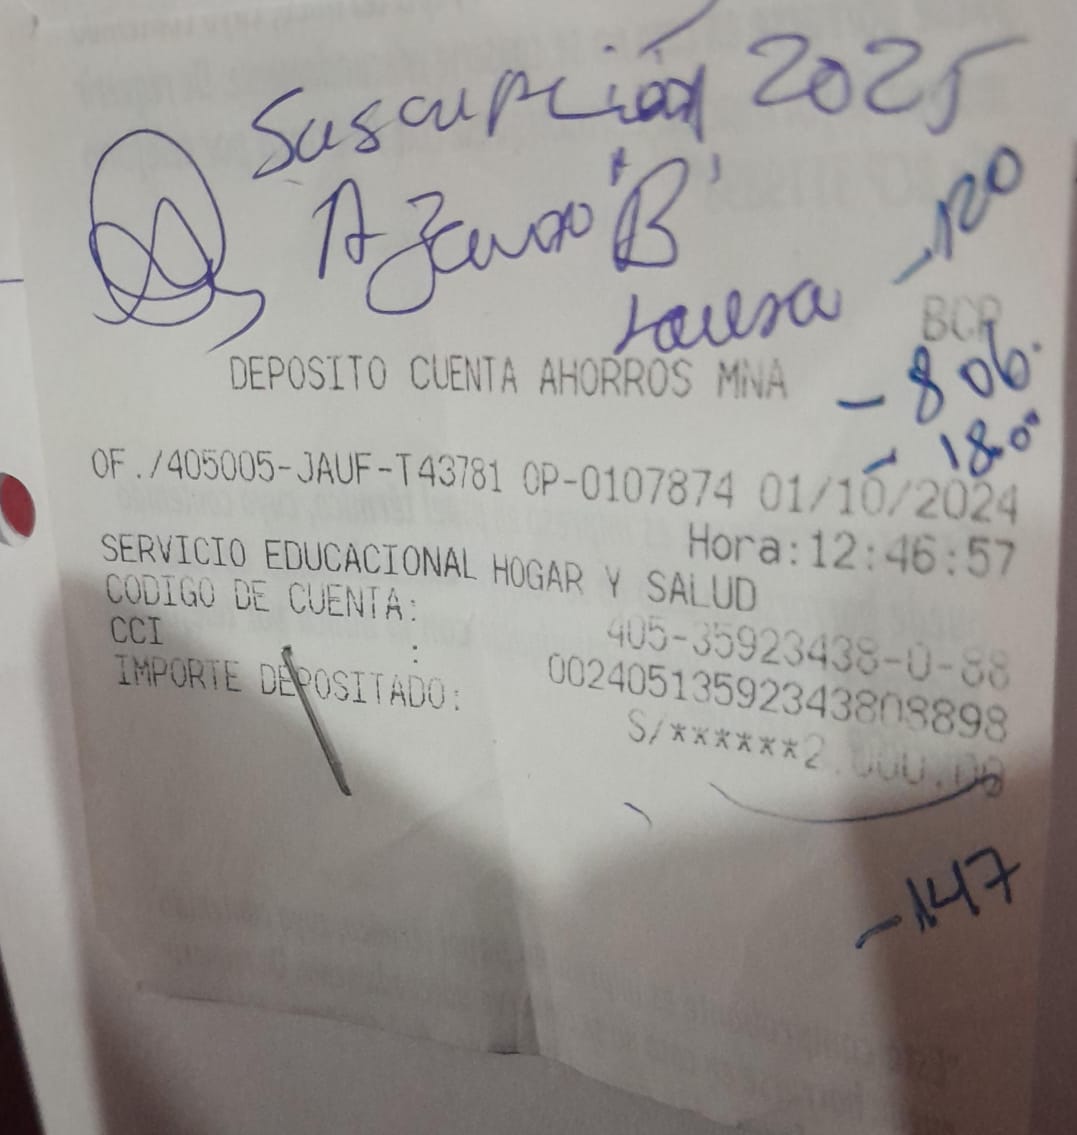 Suscripción 2025
"B"
120
BCP
DEPOSITO CUENTA AHORROS MNA
- 806.
- 180
OF./405005-JAUF-T43781 OP-0107874 01/10/2024
Hora:12:46:57
SERVICIO EDUCACIONAL HOGAR Y SALUD
CODIGO DE CUENTA: 405-35923438-0-88
CCI : 00240513592343808898
IMPORTE DEPOSITADO: S/******2.000.00
-147